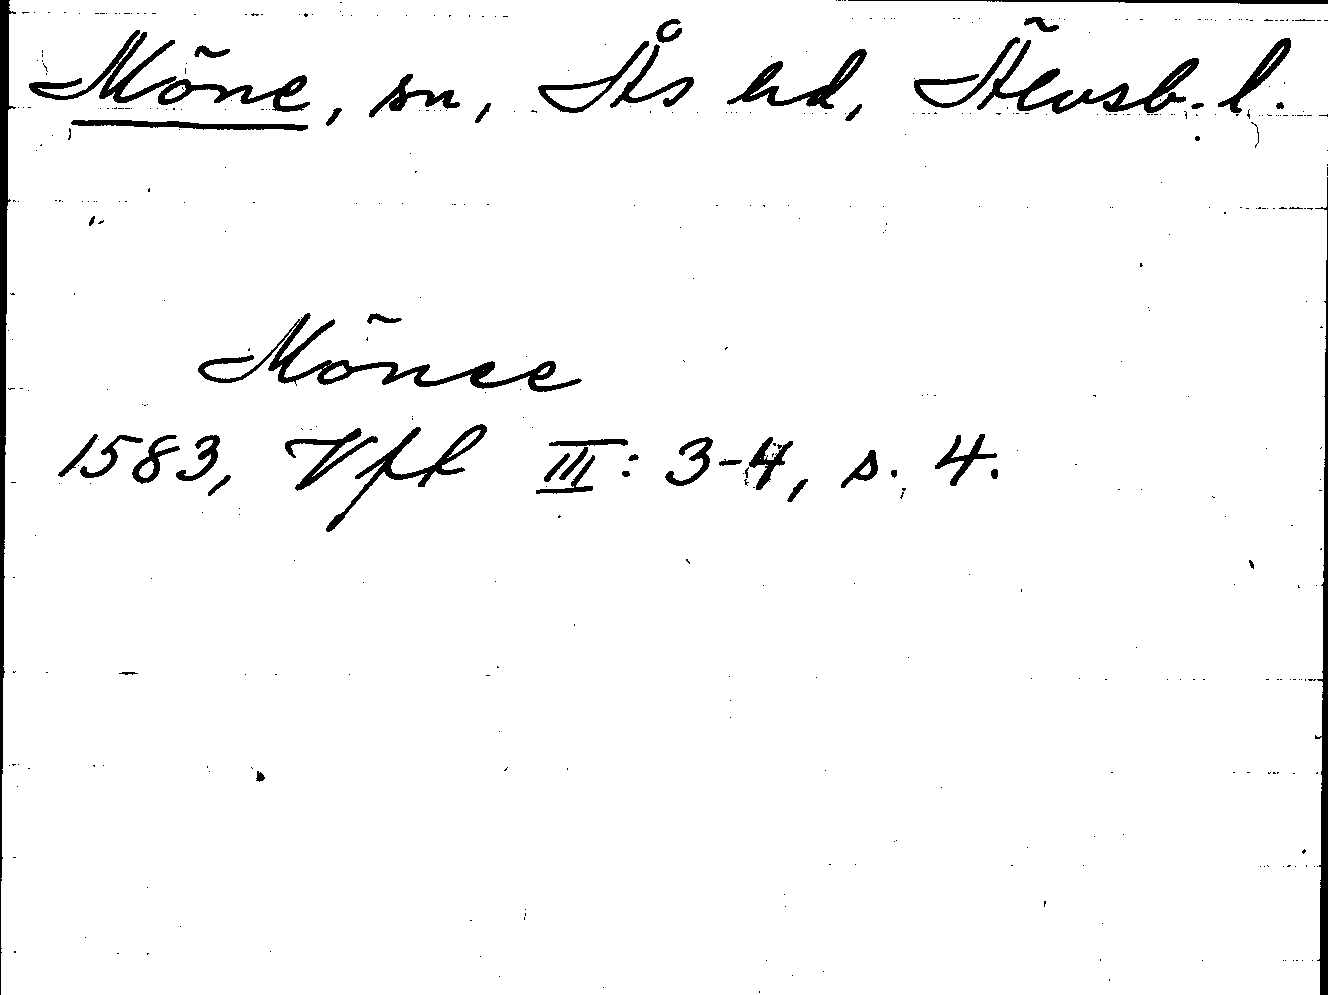 Möne, sn, Ås hd, Älvsb. l.
Mönee
1583, Vfl III: 3-4, s. 4.